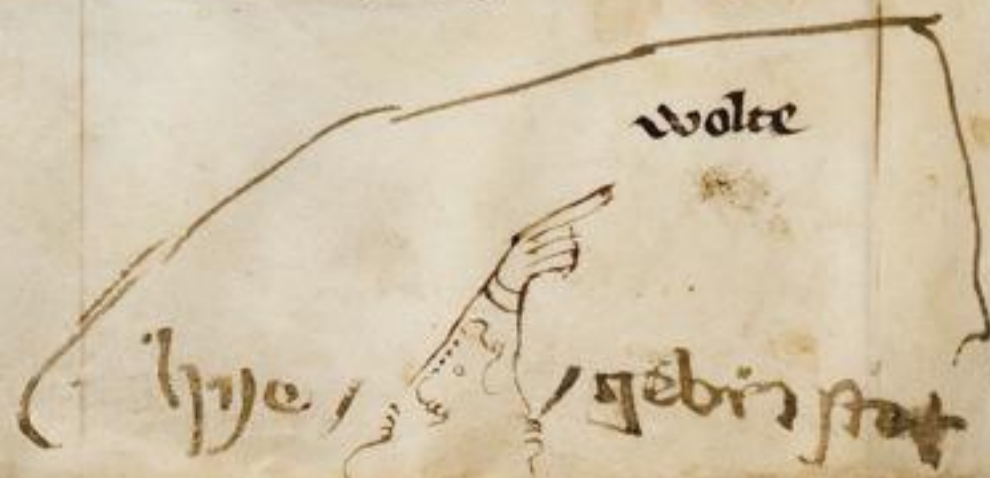 wolte
hye / / gebrist